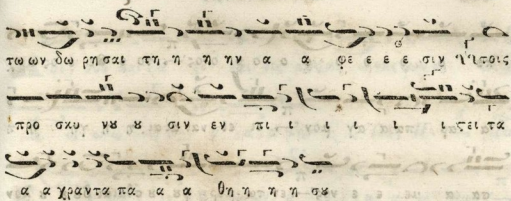 τω ων δω ρησαι τη η η ην α α φε ε ε ε σιν τοις
προ σκυ νου σιν εν πι ι ι ι ι ι τει τα
α α χραντα πα α α θη η η η σου